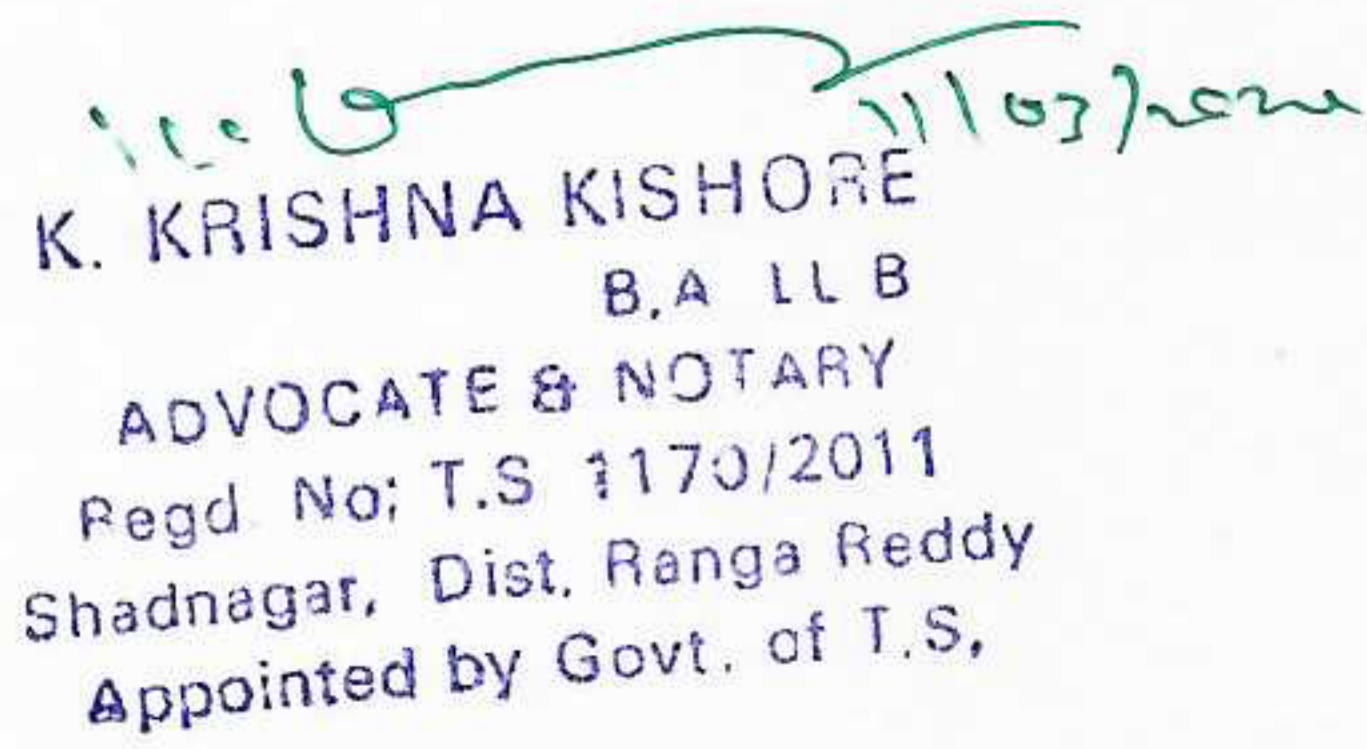 11/03/2022
K. KRISHNA KISHORE
B.A LL B
ADVOCATE & NOTARY
Regd No; T.S 1170/2011
Shadnagar, Dist. Ranga Reddy
Appointed by Govt. of T.S,